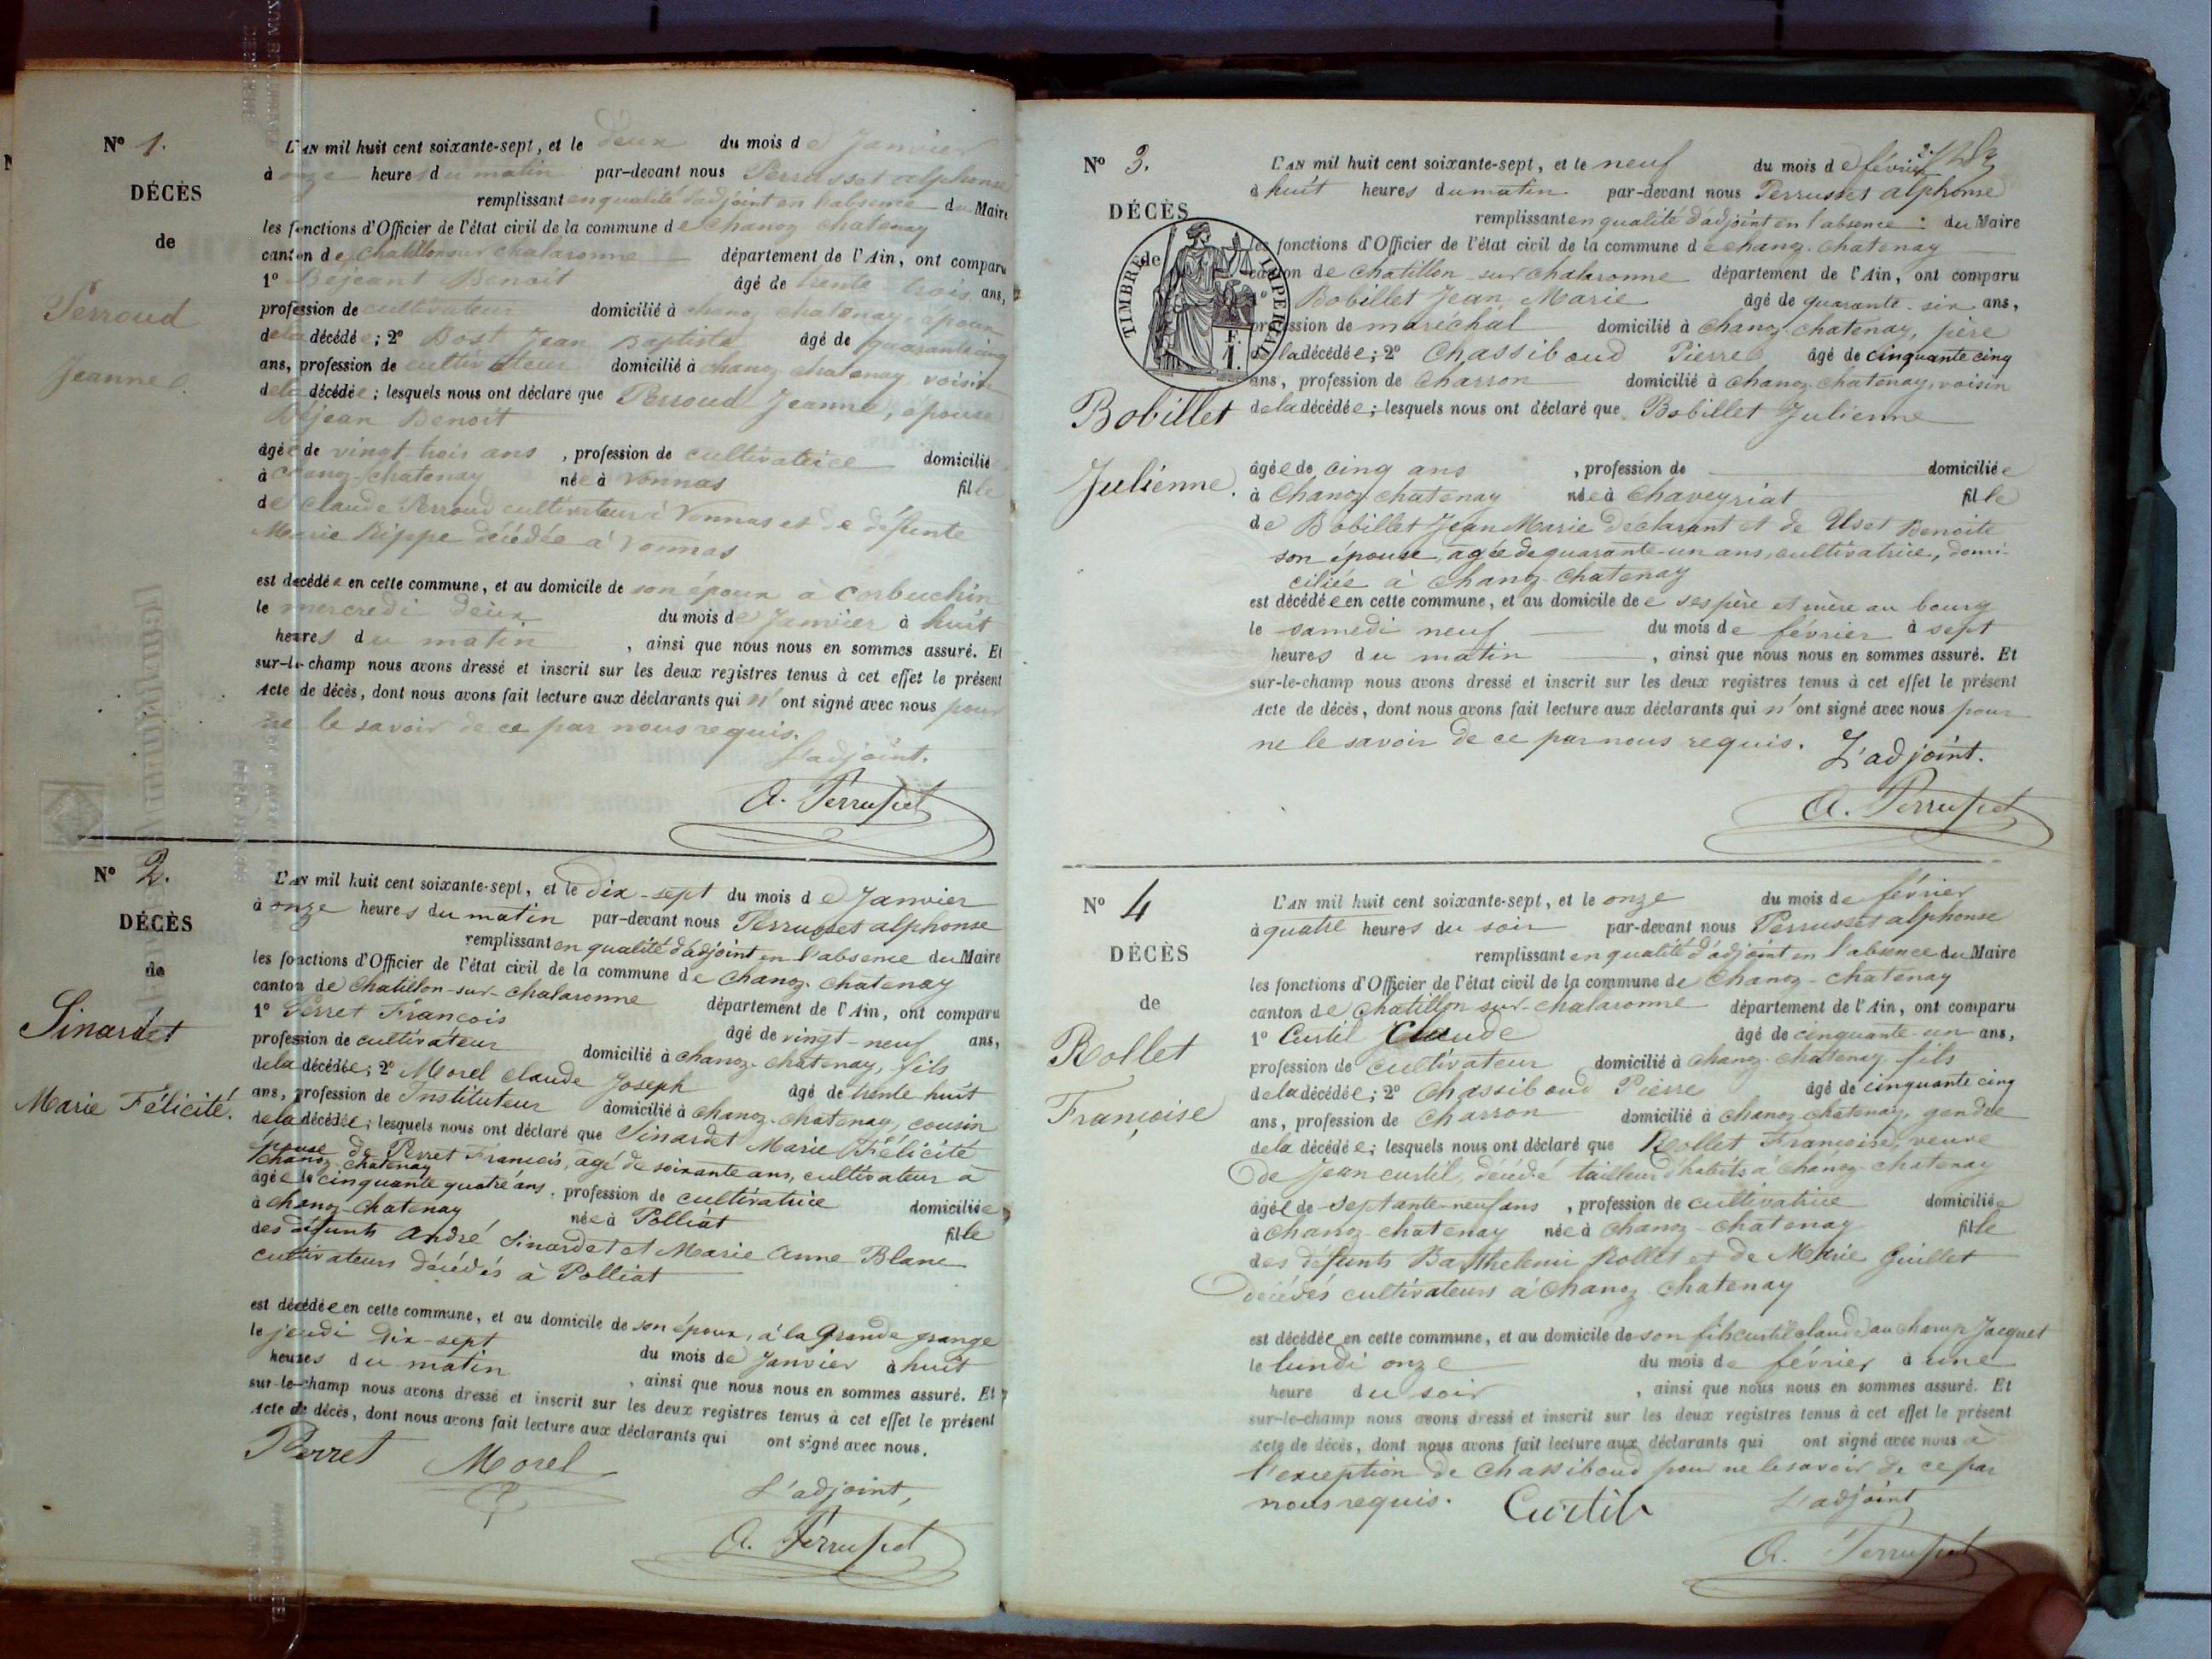 N° 1.
DÉCÈS
de
Perroud
Jeanne
L'AN mil huit cent soixante-sept, et le deux du mois de Janvier
à onze heures du matin par-devant nous Perrusset alphonse
remplissant en qualité d'adjoint en l'absence du Maire
les fonctions d'Officier de l'état civil de la commune de chanoz chatenay
canton de chatillon sur chalaronne département de l'Ain, ont comparu
1° Béjeant Benoit âgé de trente-trois ans,
profession de cultivateur domicilié à chanoz chatenay, époux
de la décédée; 2° Bost Jean Baptiste âgé de quarante cinq
ans, profession de cultivateur domicilié à chanoz chatenay voisin
de la décédée; lesquels nous ont déclaré que Perroud Jeanne, épouse
Béjean Benoit
âgée de vingt-trois ans, profession de cultivatrice domiciliée
à chanoz-chatenay née à Vonnas fille
de Claude Perroud cultivateur à Vonnas et de défunte
Marie Rippe décédée à Vonnas
est décédée en cette commune, et au domicile de son époux à Corbuchin
le mercredi deux du mois de Janvier à huit
heures du matin, ainsi que nous nous en sommes assuré. Et
sur-le-champ nous avons dressé et inscrit sur les deux registres tenus à cet effet le présent
Acte de décès, dont nous avons fait lecture aux déclarants qui n'ont signé avec nous pour
ne le savoir de ce par nous requis.
L'adjoint.
A. Perrusset
N° 2.
DÉCÈS
de
Sinardet
Marie Félicité.
L'AN mil huit cent soixante-sept, et le dix-sept du mois de Janvier
à onze heures du matin par-devant nous Perrusset alphonse
remplissant en qualité d'adjoint en l'absence du Maire
les fonctions d'Officier de l'état civil de la commune de Chanoz-chatenay
canton de chatillon-sur-chalaronne département de l'Ain, ont comparu
1° Perret François âgé de vingt-neuf ans,
profession de cultivateur domicilié à chanoz-chatenay, fils
de la décédée; 2° Morel Claude Joseph âgé de trente huit
ans, profession de Instituteur domicilié à chanoz-chatenay, cousin
de la décédée; lesquels nous ont déclaré que Sinardet Marie Félicité
épouse de Perret François, âgé de soixante ans, cultivateur à
Chanoz-chatenay
âgée de cinquante quatre ans, profession de cultivatrice domiciliée
à chanoz-chatenay née à Polliat fille
des défunts André Sinardet et Marie Anne Blanc
cultivateurs décédés à Polliat
est décédée en cette commune, et au domicile de son époux, à la Grande grange
le jeudi dix-sept du mois de Janvier à huit
heures du matin, ainsi que nous nous en sommes assuré. Et
sur-le-champ nous avons dressé et inscrit sur les deux registres tenus à cet effet le présent
Acte de décès, dont nous avons fait lecture aux déclarants qui ont signé avec nous.
Perret Morel
L'adjoint,
A. Perrusset
N° 3.
DÉCÈS
de
TIMBRE IMPÉRIAL
1 F.
Bobillet
Julienne.
L'AN mil huit cent soixante-sept, et le neuf du mois de février
à huit heures du matin par-devant nous Perrusset alphonse
remplissant en qualité d'adjoint en l'absence du Maire
les fonctions d'Officier de l'état civil de la commune de chanoz-chatenay
canton de chatillon-sur chalaronne département de l'Ain, ont comparu
1° Bobillet Jean Marie âgé de quarante-six ans,
profession de maréchal domicilié à chanoz-chatenay, père
de la décédée; 2° Chassiboud Pierre âgé de cinquante cinq
ans, profession de Charron domicilié à chanoz-chatenay, voisin
de la décédée; lesquels nous ont déclaré que Bobillet Julienne
âgée de cinq ans, profession de domiciliée
à Chanoz chatenay née à Chaveyriat fille
de Bobillet Jean Marie déclarant et de Uset Benoite
son épouse, agée de quarante-un ans, cultivatrice, domi-
ciliée à Chanoz-Chatenay
est décédée en cette commune, et au domicile de ses père et mère au bourg
le samedi neuf du mois de février à sept
heures du matin, ainsi que nous nous en sommes assuré. Et
sur-le-champ nous avons dressé et inscrit sur les deux registres tenus à cet effet le présent
Acte de décès, dont nous avons fait lecture aux déclarants qui n'ont signé avec nous pour
ne le savoir de ce par nous requis.
L'adjoint.
A. Perrusset
N° 4
DÉCÈS
de
Rollet
Françoise
L'AN mil huit cent soixante-sept, et le onze du mois de février
à quatre heures du soir par-devant nous Perrusset alphonse
remplissant en qualité d'adjoint en l'absence du Maire
les fonctions d'Officier de l'état civil de la commune de Chanoz-chatenay
canton de Chatillon sur-chalaronne département de l'Ain, ont comparu
1° Curtil Claude âgé de cinquante-un ans,
profession de cultivateur domicilié à chanoz-chatenay, fils
de la décédée; 2° Chassiboud Pierre âgé de cinquante cinq
ans, profession de charron domicilié à chanoz-chatenay, gendre
de la décédée; lesquels nous ont déclaré que Rollet Françoise, veuve
de Jean Curtil, décédé tailleur d'habits à chanoz-chatenay
âgée de septante-neuf ans, profession de cultivatrice domiciliée
à chanoz-chatenay née à chanoz-chatenay fille
des défunts Barthelemi Rollet et de Marie Guillet
décédés cultivateurs à Chanoz chatenay
est décédée en cette commune, et au domicile de son fils curtil claude au champ Jacquet
le lundi onze du mois de février à une
heure du soir, ainsi que nous nous en sommes assuré. Et
sur-le-champ nous avons dressé et inscrit sur les deux registres tenus à cet effet le présent
Acte de décès, dont nous avons fait lecture aux déclarants qui ont signé avec nous à
l'exception de Chassiboud pour ne le savoir de ce par
nous requis. Curtil L'adjoint
A. Perrusset